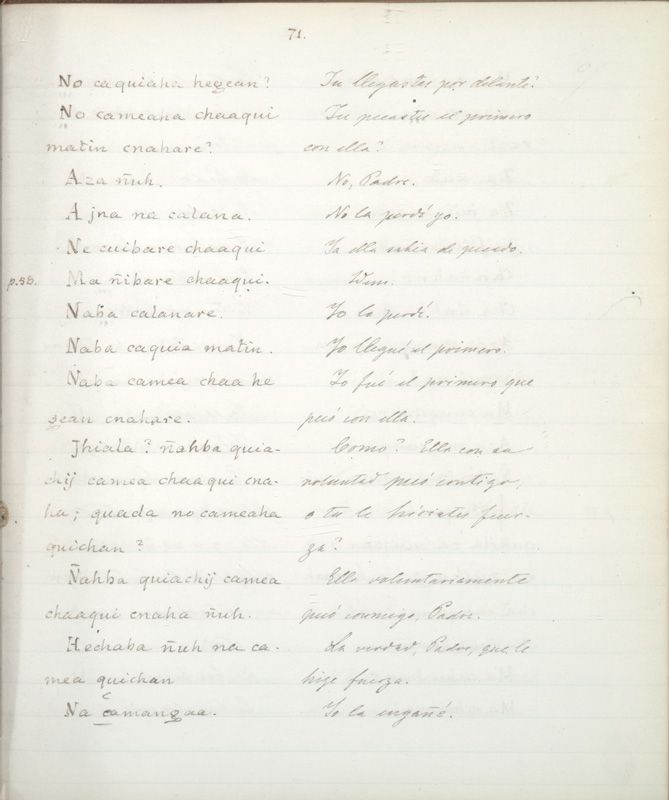 71.
No caquiaha hegean? Tu llegastes por delante?
No cameaha chaaqui Tu pecastes el primero
matin cnahare? con ella?
Aza ñuh. No, Padre.
A jna na calana. No la perdí yo.
Ne cuibare chaaqui Ya ella sabia de puedo.
p.58. Ma ñibare chaaqui. Idem.
Naba calanare. Yo la perdí.
Naba caquia matin. Yo llegué el primero.
Naba camea chaa he Yo fué el primero que
gean cnahare. pecó con ella.
Jhiala? ñahba quia- Como? Ella con su
chij camea chaaqui cna- voluntad pecó contigo,
ha; quada no cameaha o tu le hiciates fuer-
quichan? za?
Ñahba quiachij camea Ella voluntariamente
chaaqui cnaha ñuh. pecó conmigo, Padre.
Hechaba ñuh na ca- La verdad, Padre, que le
mea quichan hize fuerza.
c
Na camangaa. Yo la engañé.